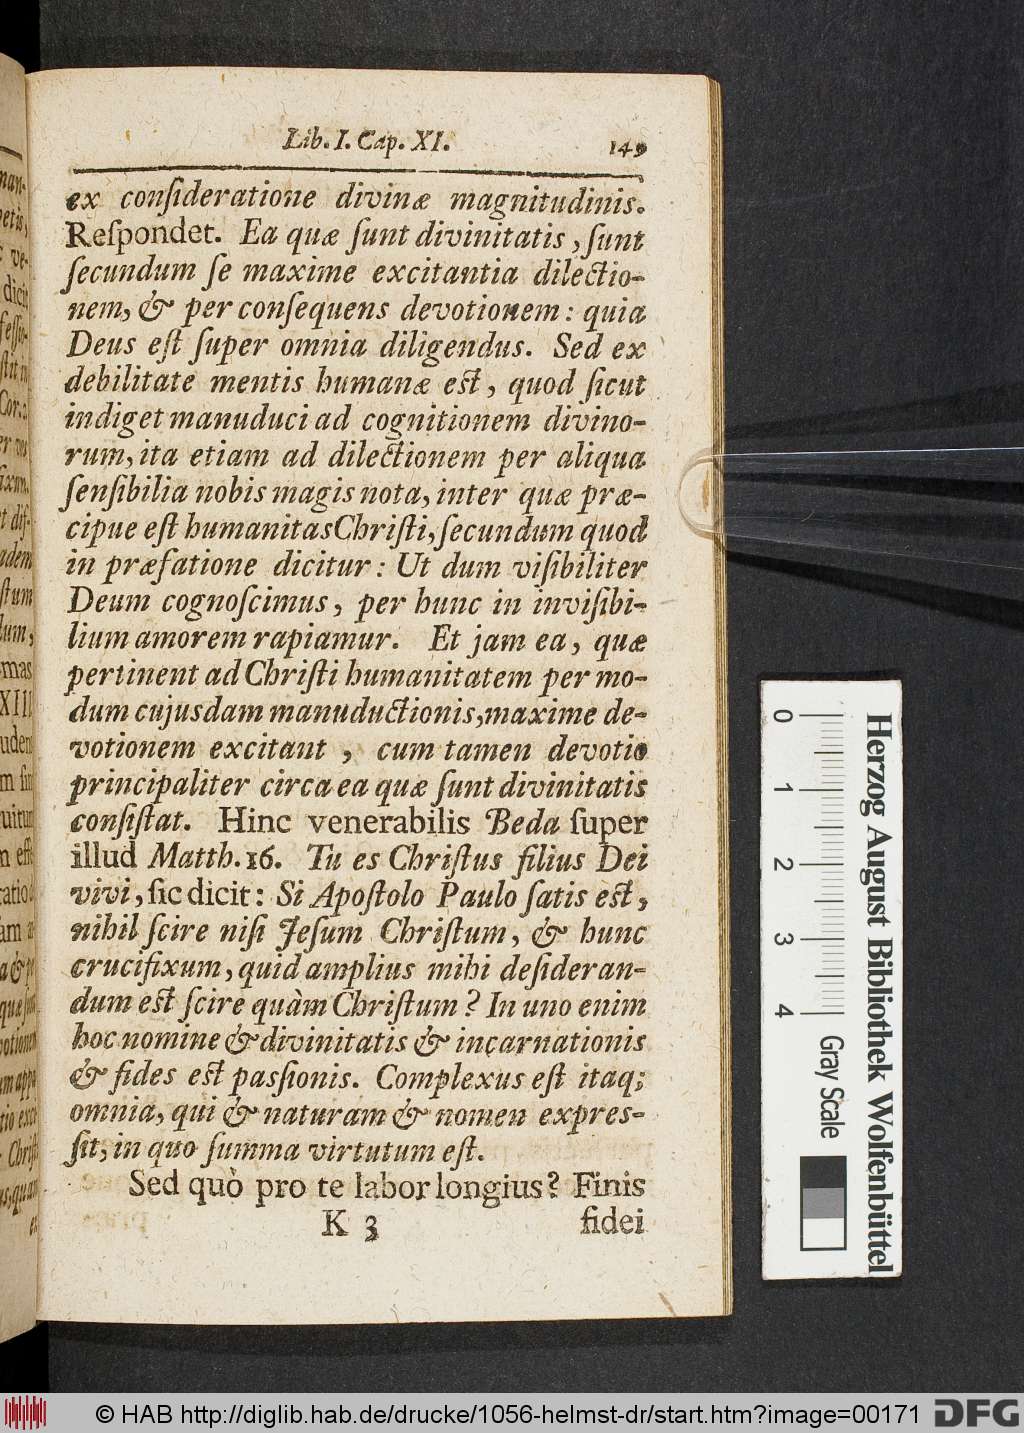 Lib. I. Cap. XI. 149
ex conſideratione divinæ magnitudinis.
Reſpondet. Ea quæ ſunt divinitatis, ſunt
ſecundum ſe maxime excitantia dilectio-
nem, & per conſequens devotionem: quia
Deus eſt ſuper omnia diligendus. Sed ex
debilitate mentis humanæ est, quod ſicut
indiget manuduci ad cognitionem divino-
rum, ita etiam ad dilectionem per aliqua
ſenſibilia nobis magis nota, inter quæ præ-
cipue eſt humanitas Chriſti, ſecundum quod
in præfatione dicitur: Ut dum viſibiliter
Deum cognoſcimus, per hunc in inviſibi-
lium amorem rapiamur. Et jam ea, quæ
pertinent ad Chriſti humanitatem per mo-
dum cujusdam manuductionis, maxime de-
votionem excitant, cum tamen devotio
principaliter circa ea quæ ſunt divinitatis
conſiſtat. Hinc venerabilis Beda ſuper
illud Matth. 16. Tu es Chriſtus filius Dei
vivi, ſic dicit: Si Apoſtolo Paulo ſatis est,
nihil ſcire niſi Jeſum Chriſtum, & hunc
crucifixum, quid amplius mihi deſideran-
dum est ſcire quàm Chriſtum? In uno enim
hoc nomine & divinitatis & incarnationis
& fides est paſsionis. Complexus eſt itaq;
omnia, qui & naturam & nomen expreſ-
ſit, in quo ſumma virtutum eſt.
Sed quò pro te labor longius? Finis
K 3 fidei
0 1 2 3 4
Herzog August Bibliothek Wolfenbüttel
Gray Scale
© HAB http://diglib.hab.de/drucke/1056-helmst-dr/start.htm?image=00171
DFG